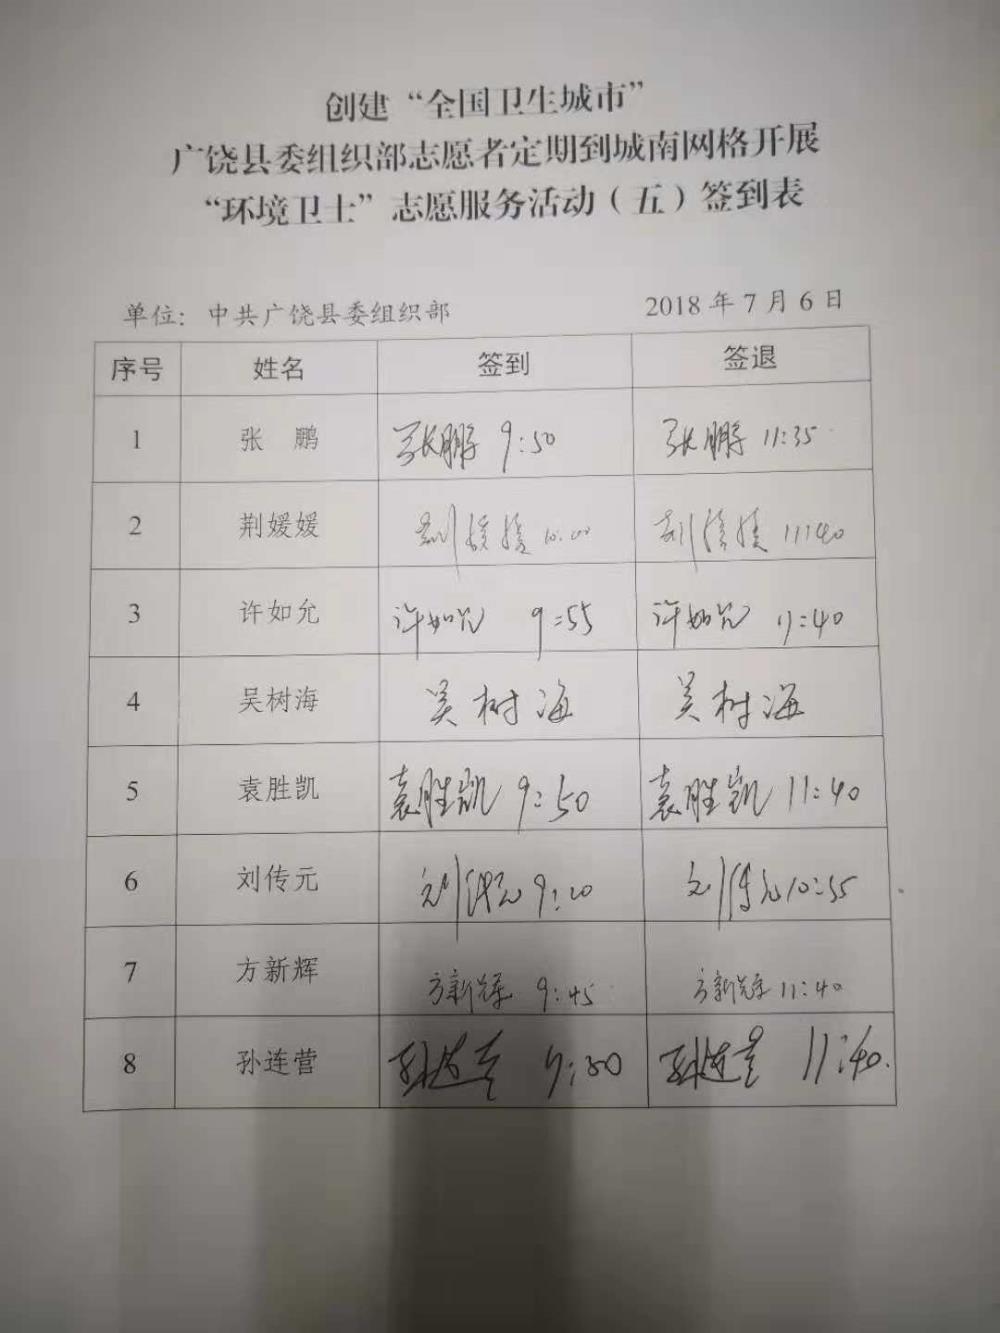 创建“全国卫生城市”
广饶县委组织部志愿者定期到城南网格开展
“环境卫士”志愿服务活动（五）签到表
单位：中共广饶县委组织部 2018年7月6日
序号 姓名 签到 签退
1 张 鹏 张鹏 9:50 张鹏 11:35
2 荆媛媛 荆媛媛 10:00 荆媛媛 11:40
3 许如允 许如允 9:55 许如允 11:40
4 吴树海 吴树海 吴树海
5 袁胜凯 袁胜凯 9:50 袁胜凯 11:40
6 刘传元 刘传元 9:20 刘传元 10:55
7 方新辉 方新辉 9:45 方新辉 11:40
8 孙连营 孙连营 9:50 孙连营 11:40.